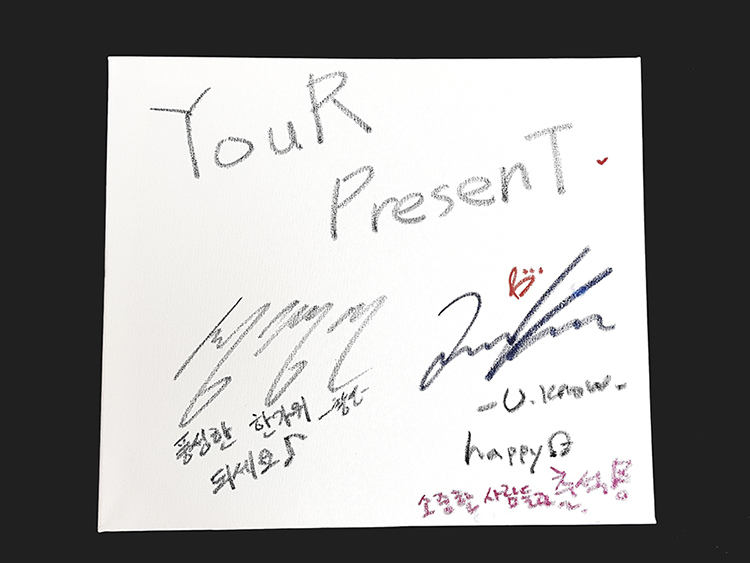 YouR
PresenT.
풍성한 한가위
되세요♪
-창민-
-U.know-
happy
소중한 사람들과 추석을